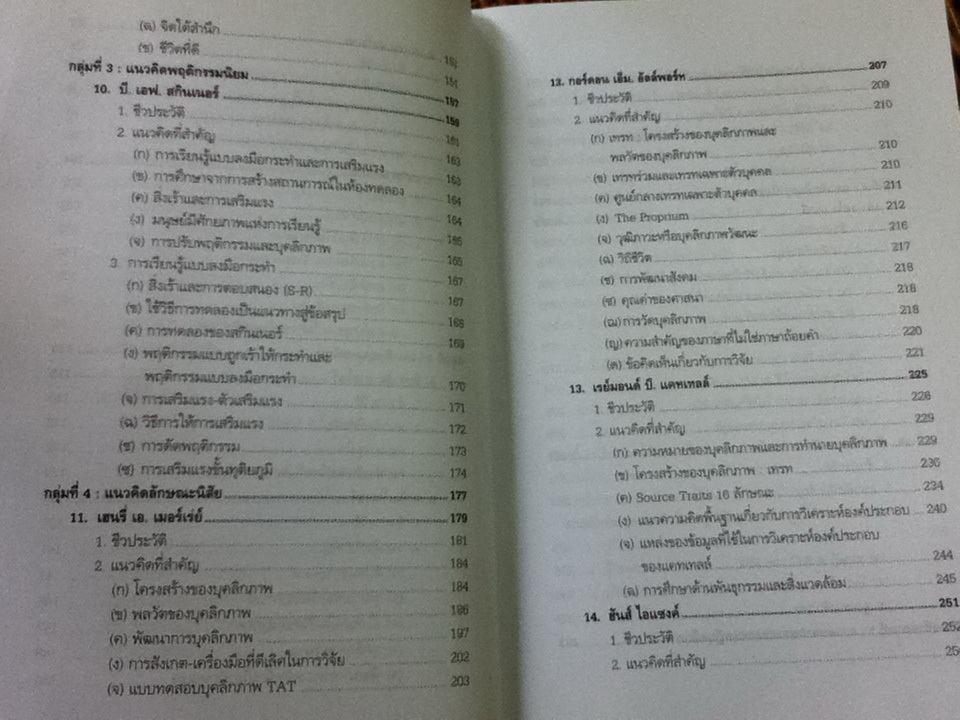 (ฉ) จิตใต้สำนึก
(ช) ชีวิตที่ดี
กลุ่มที่ 3 : แนวคิดพฤติกรรมนิยม
10. บี. เอฟ. สกินเนอร์
1. ชีวประวัติ
2. แนวคิดที่สำคัญ
(ก) การเรียนรู้แบบลงมือกระทำและการเสริมแรง
(ข) การศึกษาจากการสร้างสถานการณ์ในห้องทดลอง
(ค) สิ่งเร้าและการเสริมแรง 164
(ง) มนุษย์มีศักยภาพแห่งการเรียนรู้ 164
(จ) การปรับพฤติกรรมและบุคลิกภาพ
3. การเรียนรู้แบบลงมือกระทำ
(ก) สิ่งเร้าและการตอบสนอง (S-R) 167
(ข) ใช้วิธีการทดลองเป็นแนวทางสู่ข้อสรุป 167
(ค) การทดลองของสกินเนอร์ 168
(ง) พฤติกรรมแบบถูกเร้าให้กระทำและ 169
พฤติกรรมแบบลงมือกระทำ 170
(จ) การเสริมแรง-ตัวเสริมแรง 171
(ฉ) วิธีการให้การเสริมแรง 172
(ช) การดัดพฤติกรรม 173
(ซ) การเสริมแรงขั้นทุติยภูมิ 174
กลุ่มที่ 4 : แนวคิดลักษณะนิสัย 177
11. เฮนรี่ เอ. เมอร์เร่ย์ 179
1. ชีวประวัติ 181
2. แนวคิดที่สำคัญ 184
(ก) โครงสร้างของบุคลิกภาพ 184
(ข) พลวัตของบุคลิกภาพ 186
(ค) พัฒนาการบุคลิกภาพ 197
(ง) การสังเกต-เครื่องมือที่ดีเลิศในการวิจัย 202
(จ) แบบทดสอบบุคลิกภาพ TAT 203
12. กอร์ดอน เอ็ม. อัลล์พอร์ท 207
1. ชีวประวัติ 209
2. แนวคิดที่สำคัญ 210
(ก) เทรท : โครงสร้างของบุคลิกภาพและ
พลวัตของบุคลิกภาพ 210
(ข) เทรทร่วมและเทรทเฉพาะตัวบุคคล 210
(ค) ศูนย์กลางเทรทเฉพาะตัวบุคคล 211
(ง) The Proprium 212
(จ) วุฒิภาวะหรือบุคลิกภาพวัฒนะ 216
(ฉ) วิถีชีวิต 217
(ช) การพัฒนาสังคม 218
(ซ) คุณค่าของศาสนา 218
(ฌ) การวัดบุคลิกภาพ 218
(ญ) ความสำคัญของภาษาที่ไม่ใช่ภาษาถ้อยคำ 220
(ด) ข้อคิดเห็นเกี่ยวกับการวิจัย 221
13. เรย์มอนด์ บี. แคทเทลล์ 225
1. ชีวประวัติ 228
2. แนวคิดที่สำคัญ 229
(ก) ความหมายของบุคลิกภาพและการทำนายบุคลิกภาพ 229
(ข) โครงสร้างของบุคลิกภาพ : เทรท
(ค) Source Traits 16 ลักษณะ 234
(ง) แนวความคิดพื้นฐานเกี่ยวกับการวิเคราะห์องค์ประกอบ 240
(จ) แหล่งของข้อมูลที่ใช้ในการวิเคราะห์องค์ประกอบ
ของแคทเทลล์ 244
(ฉ) การศึกษาด้านพันธุกรรมและสิ่งแวดล้อม 245
14. ฮันส์ ไอแซงค์ 251
1. ชีวประวัติ 252
2. แนวคิดที่สำคัญ